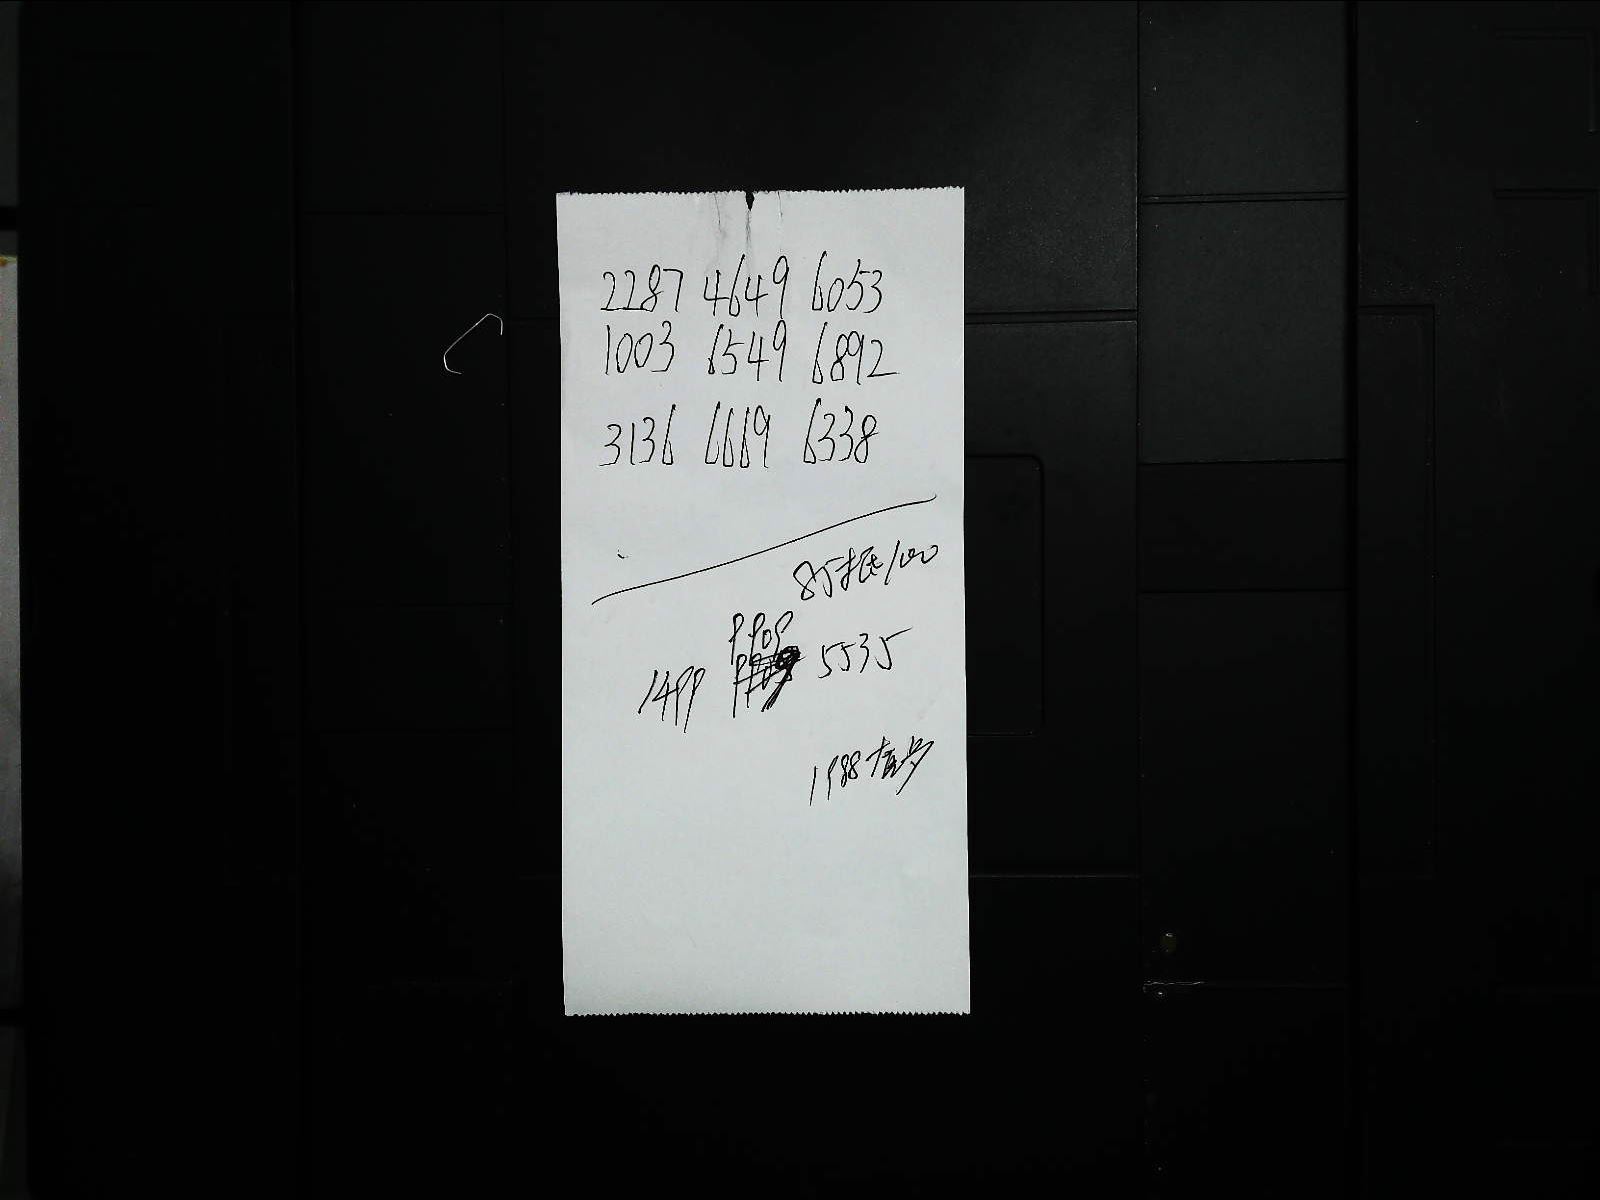 2287 4649 6053
1003 6549 6892
3136 6669 6338
85抵100
9909
1499 5535
1988